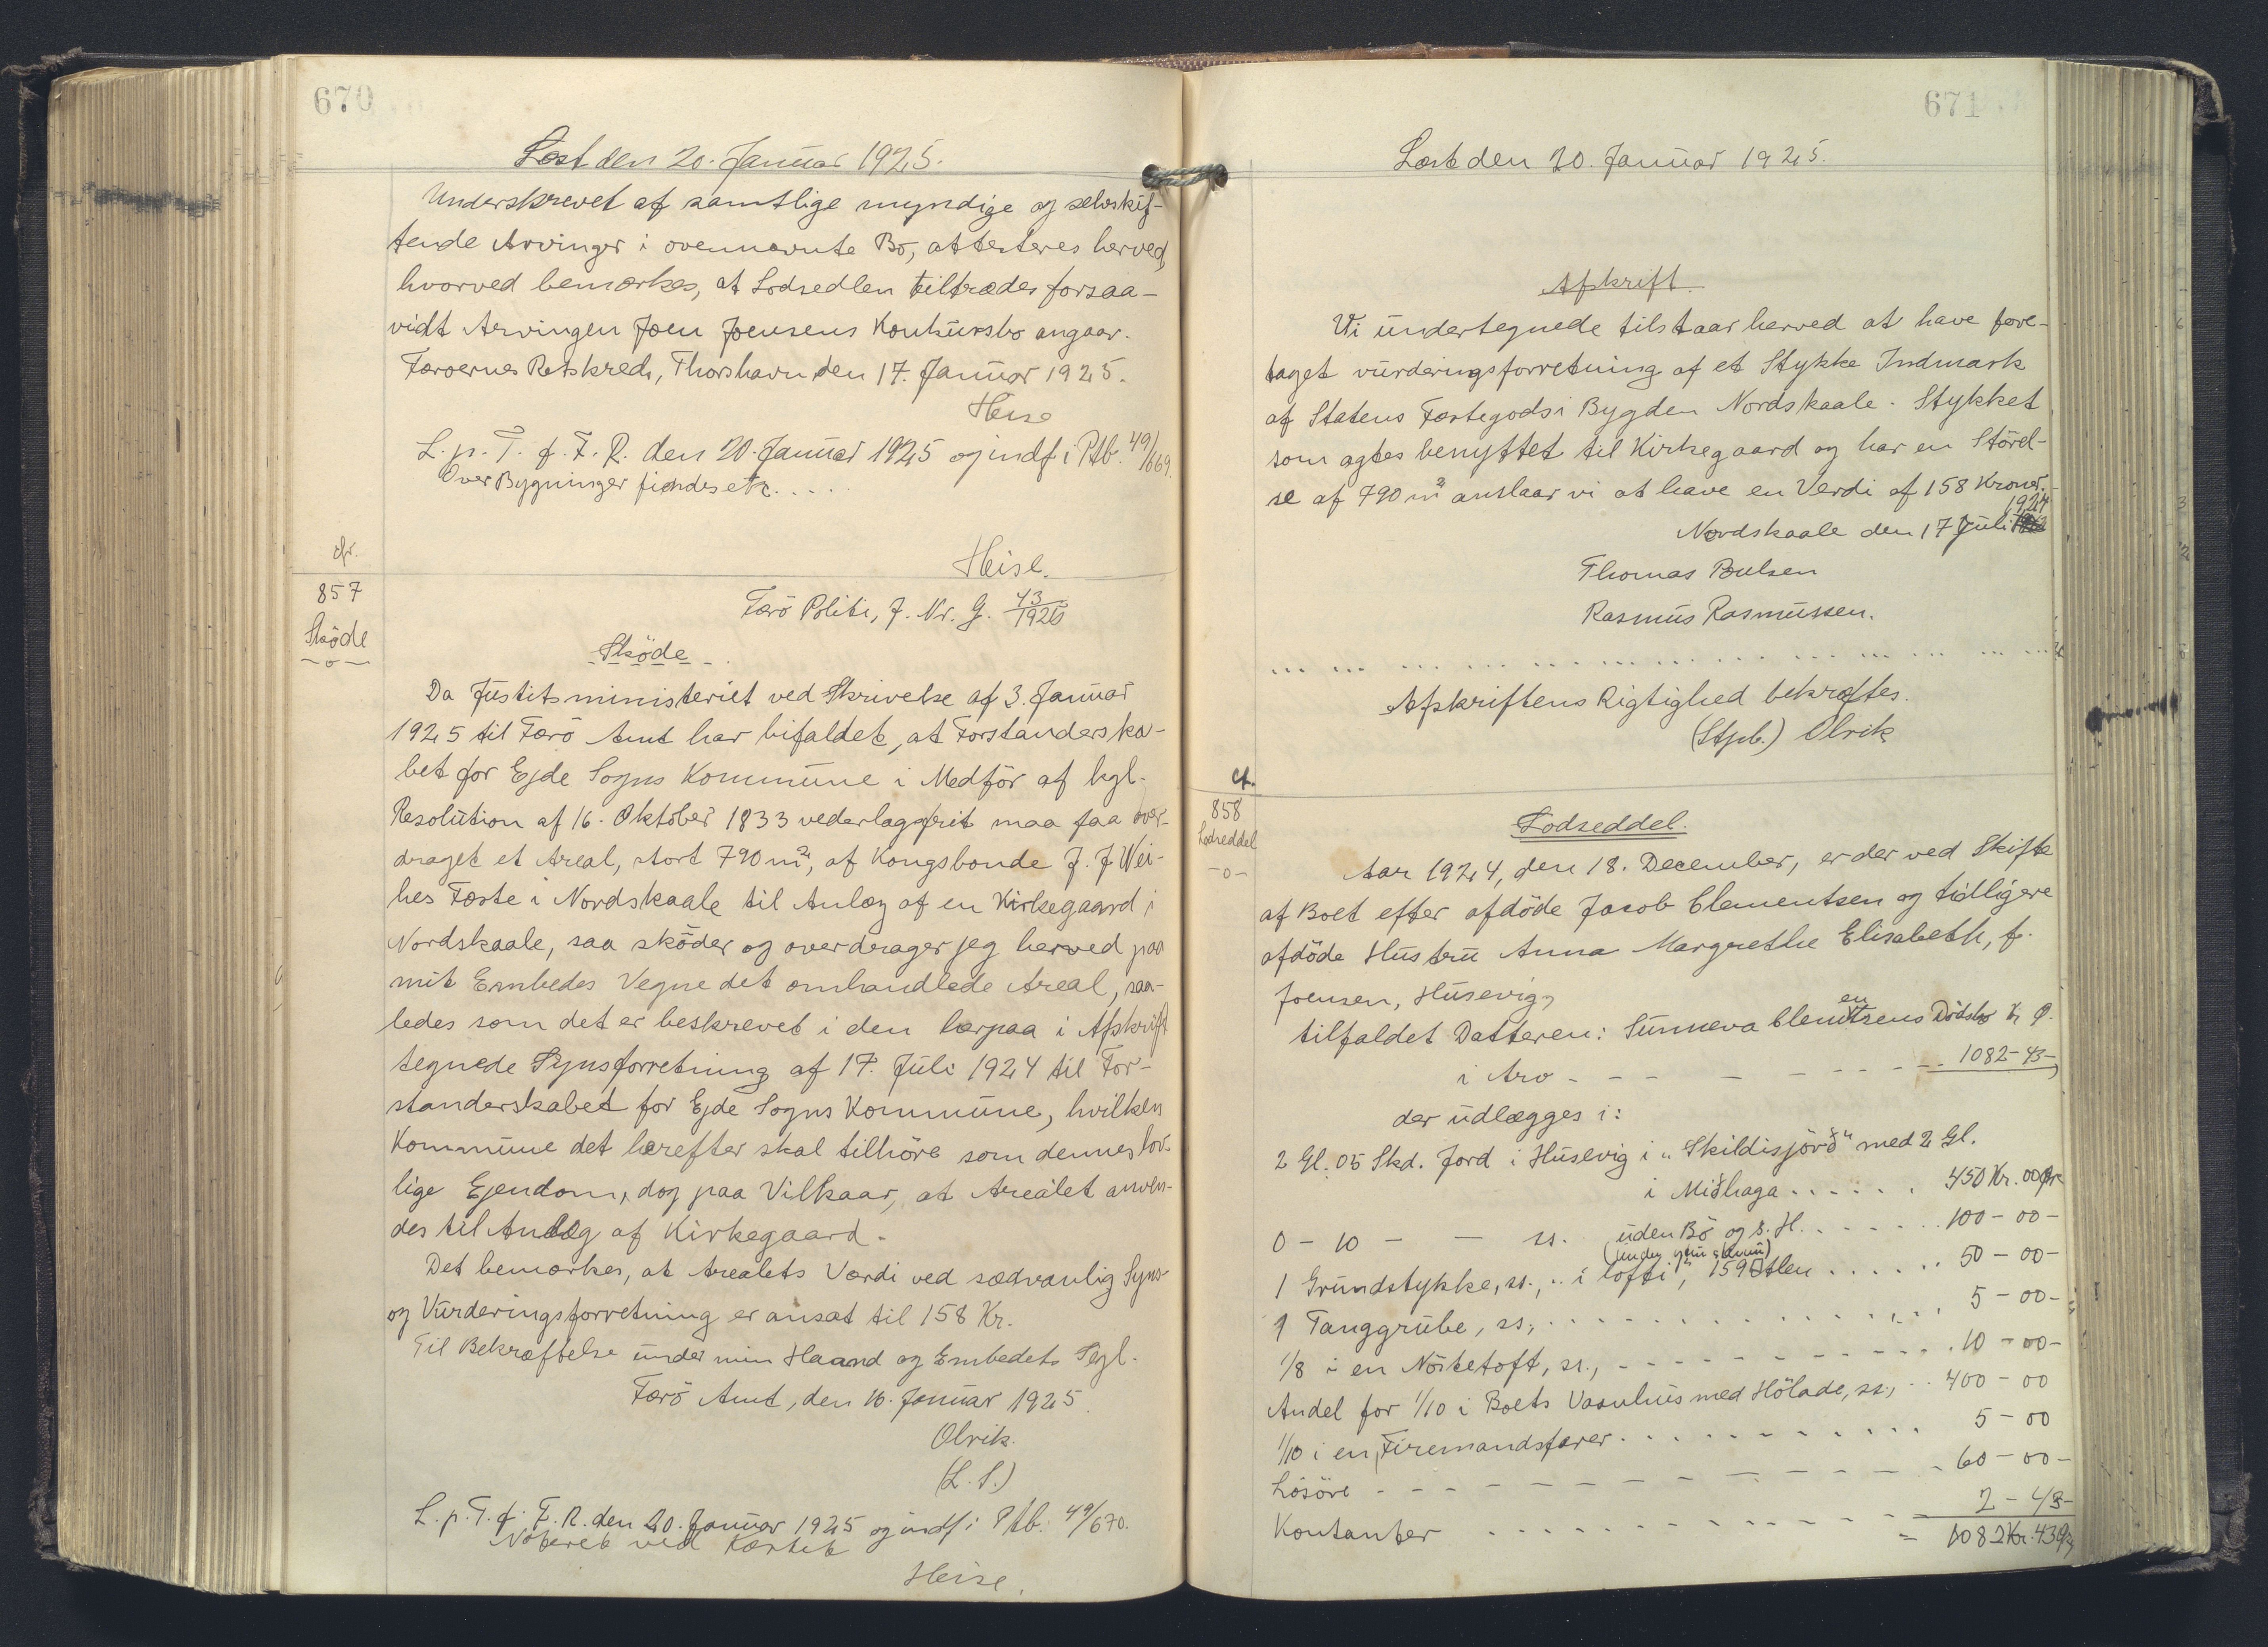 670
Læst den 20. Januar 1925.
Underskrevet af samtlige myndige og selvskif-
tende Arvinger i ovennævnte Bo, attesteres herved,
hvorved bemærkes, at Lodsedlen tiltrædes forsaa-
vidt Arvingen Joen Joensens Konkursbo angaar.
Færøernes Retskreds, Thorshavn den 17. Januar 1925.
Heise
L. p. T. f. F. R. den 20. Januar 1925 og indf i Ptb. 49/669.
Over Bygninger findes etc. ....
Heise.
cfr.
857
Sköde
-o-
Færö Politi, J. Nr. G. 43/1925
Sköde.
Da Justitsministeriet ved Skrivelse af 3. Januar
1925 til Færö Amt har bifaldet, at Forstanderska-
bet for Ejde Sogns Kommune i Medför af kgl.
Resolution af 16. Oktober 1833 vederlagsfrit maa faa over-
draget et Areal, stort 790 m², af Kongsbonde J. J. Wei-
hes Fæste i Nordskaale til Anlæg af en Kirkegaard i
Nordskaale, saa sköder og overdrager jeg herved paa
mit Embedes Vegne det omhandlede Areal, saa-
ledes som det er beskrevet i den herpaa i Afskrift
tegnede Synsforretning af 17. Juli 1924 til For-
standerskabet for Ejde Sogns Kommune, hvilken
Kommune det herefter skal tilhöre som dennes lov-
lige Ejendom, dog paa Vilkaar, at Arealet anven-
des til Anlæg af Kirkegaard.
Det bemærkes, at Arealets Værdi ved sædvanlig Syns-
og Vurderingsforretning er ansat til 158 Kr.
Til Bekræftelse under min Haand og Embedets Segl.
Færö Amt, den 16. Januar 1925.
Olrik.
(L. S.)
L. p. T. f. F. R. den 20. Januar 1925 og indf i Ptb. 49/670.
Noteret ved Kortet
Heise.
671
Læst den 20. Januar 1925.
Afskrift.
Vi undertegnede tilstaar herved at have fore-
taget vurderingsforretning af et Stykke Indmark
af Statens Fæstegods i Bygden Nordskaale. Stykket
som agtes benyttet til Kirkegaard og har en Störel-
se af 790 m² anslaar vi at have en Verdi af 158 Kroner.
1924
Nordskaale den 17 Juli
Thomas Poulsen
Rasmus Rasmussen.
... ... ... ... ... ... ... ... ... ... ... ...
Afskriftens Rigtighed bekræftes.
(Stpb.) Olrik
cf.
858
Lodseddel
-o-
Lodseddel.
Aar 1924, den 18. December, er der ved Skifte
af Boet efter afdöde Jacob Clementsen og tidligere
afdöde Hustru Anna Margrethe Elisabeth, f.
Joensen, Husevig,
tilfaldet Datteren: Sunneva Clementsens Dödsbo Kr Ø.
i Arv - - - - - - - - - 1082-43-
der udlægges i:
2 Gl. 05 Skd. Jord i Husevig i "Skildisjörð" med 2 Gl.
i Miðhaga . . . . . . 450 Kr. 00 Øre
0 - 10 - - ss. uden Bö og s. H. . . . . . . 100 - 00 -
1 Grundstykke, ss., "i lofti", 159 □ Alen . . . . . . 50 - 00 -
1 Tanggrube, ss., . . . . . . . . . . . . . 5 - 00 -
1/8 i en Nöstetoft, ss., - - - - - - - - - - . 10 - 00 -
Andel for 1/10 i Boets Vaanhus med Hölade, ss., . . 400 - 00
1/10 i en Firemandsfarer . . . . . . . . . . . 5 - 00
Lösöre - - - - - - - - - - - - 60 - 00 -
Kontanter . . . . . . . . . . . . 2 - 43 -
= 1082 Kr. 43 Ø,